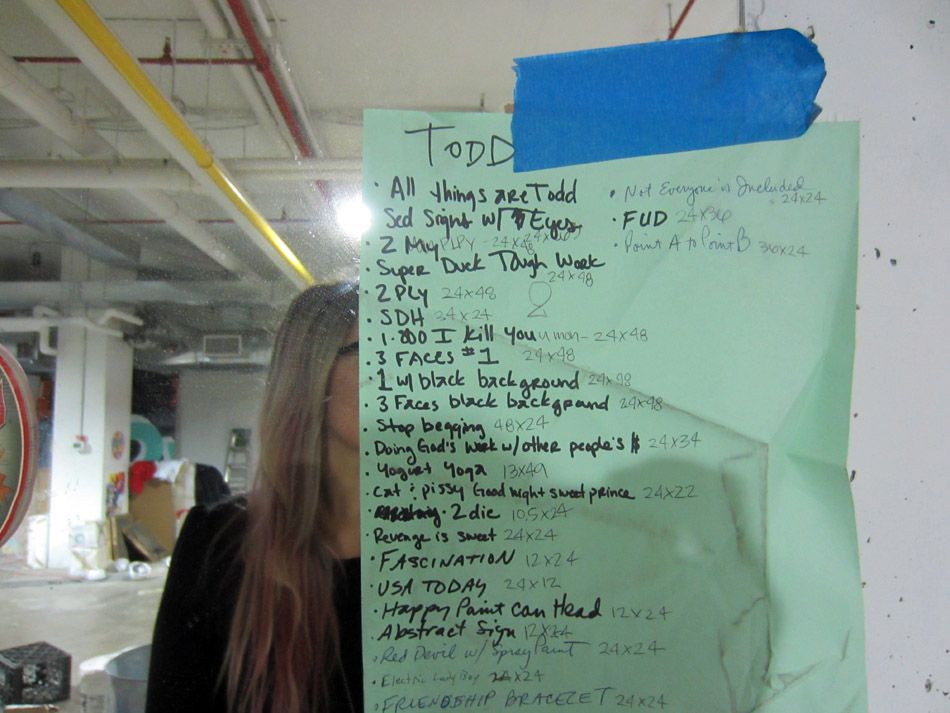 TODD
• All things are Todd
Sed Sight w/ Eyes
• 2 PLY - 24x48
• Super Duck Tough Work
24x48
• 2 PLY 24x48
• SDH 24x24
• 1.800 I Kill You u man - 24x48
• 3 FACES #1 24x48
• 1 w/ black background 24x48
• 3 Faces black background 24x48
• Stop begging 48x24
Doing God's Work w/ other people's $ 24x34
• Yogurt Yoga 13x49
• Cat & pissy Good night sweet prince 24x22
• 2 die 10.5x24
Revenge is sweet 24x24
• FASCINATION 12x24
• USA TODAY 24x12
• Happy Paint Can Head 12x24
• Abstract Sign 12x24
• Red Devil w/ Spray Paint 24x24
• Electric Lady Boy 24x24
• FRIENDSHIP BRACELET 24x24
• Not Everyone is Included
24x24
• FUD 24x36
• Point A to Point B 30x24